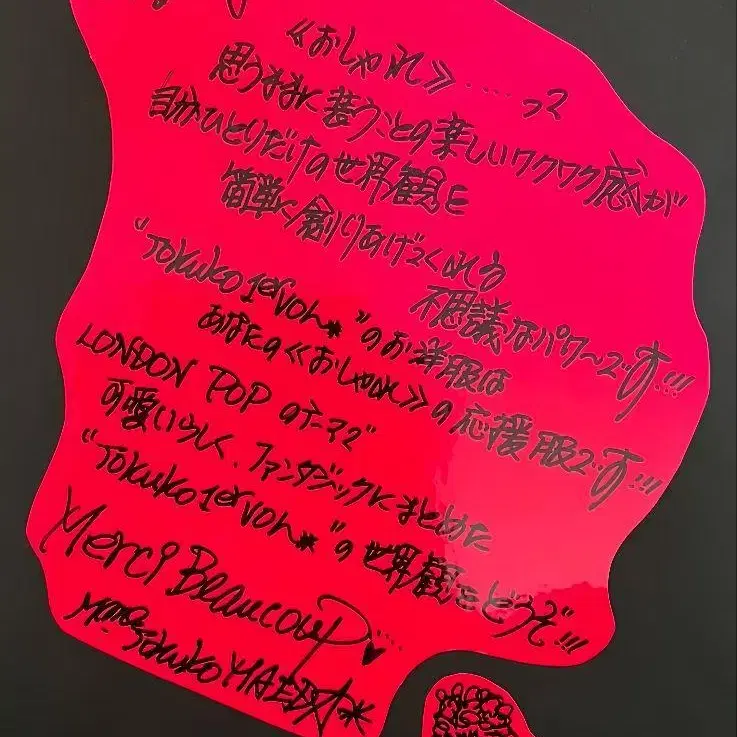 《おしゃれ》‥‥って
思うままに装うことの楽しいワクワク感が
自分ひとりだけの世界観を
簡単に創りあげてくれる
不思議なパワーです!!!
"Tokuko 1er vol*"のお洋服は
あなたの《おしゃれ》の応援服です!!!
LONDON POP のテーマで
可愛いらしく、ファンタジックにまとめた
"Tokuko 1er vol*"の世界観をどうぞ!!!
Merci Beaucoup♥‥‥
Tokuko MAEDA